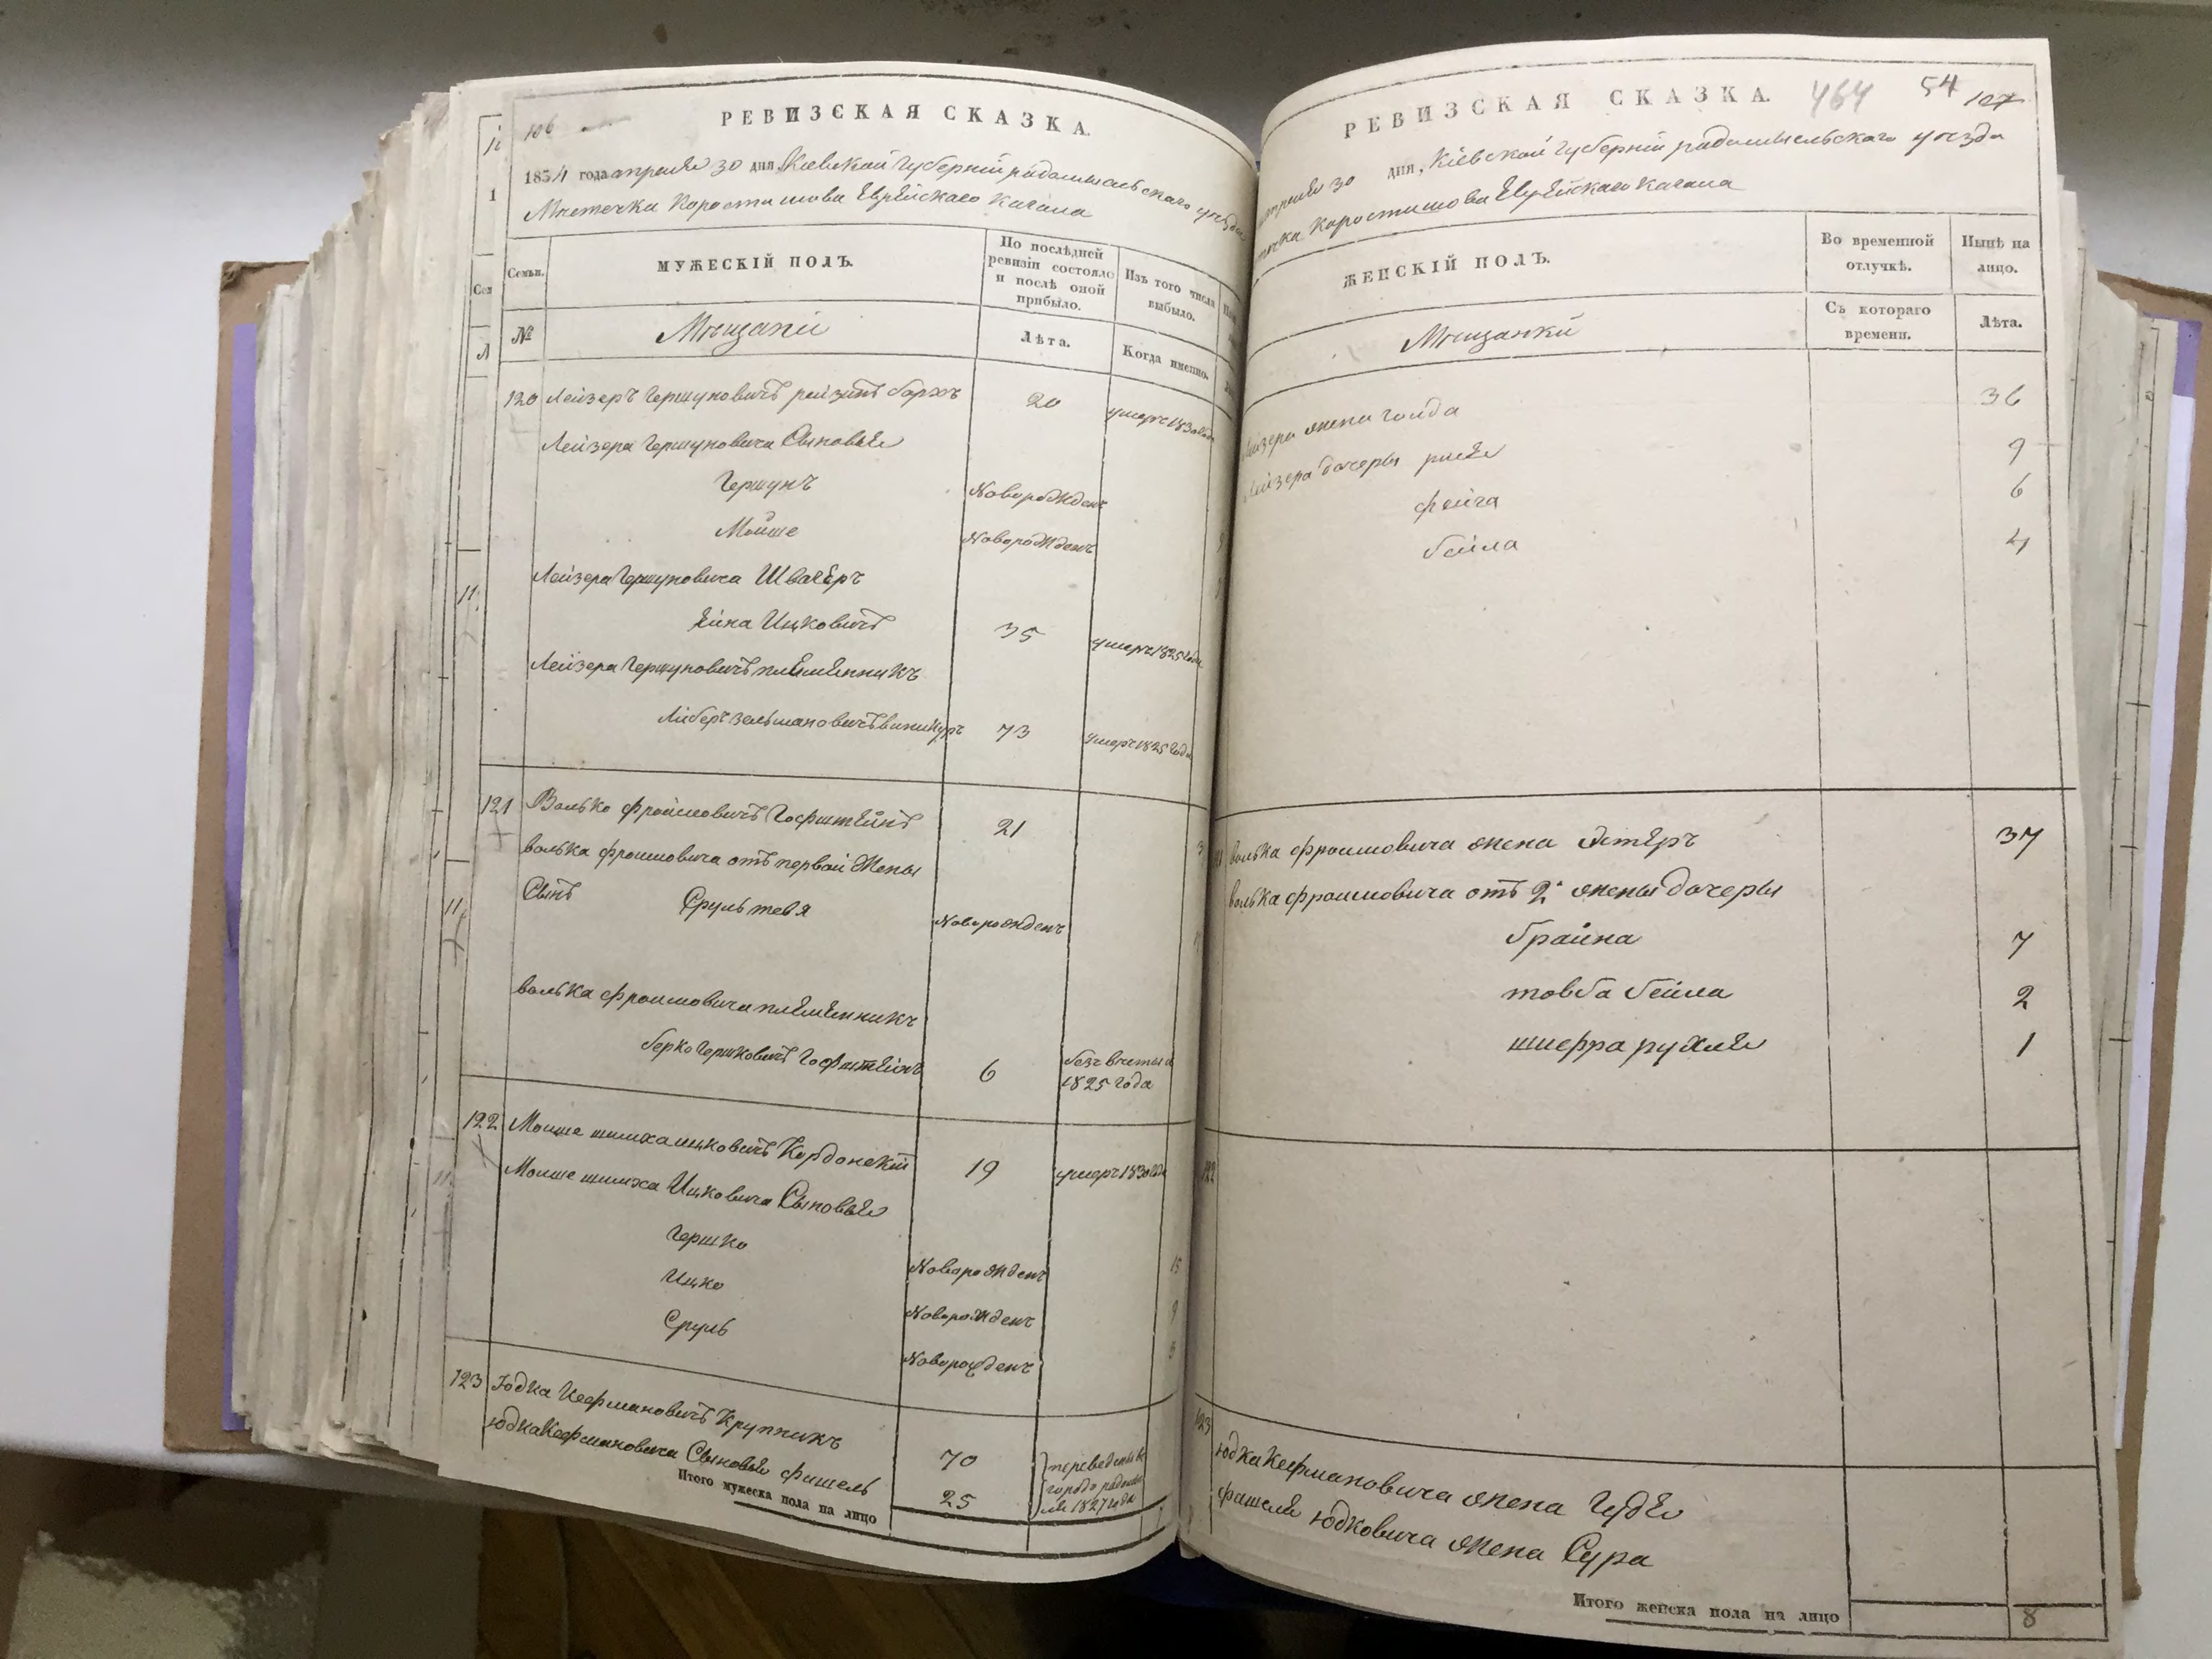 106
РЕВИЗСКАЯ СКАЗКА.
1834 года апреля 30 дня Кіевской Губерніи радомысльскаго уезда
Местечка Коростишова Еврейскаго Кагала
Семьи.
МУЖЕСКІЙ ПОЛЪ.
По послѣдней ревизіи состояло и послѣ оной прибыло.
Изъ того числа выбыло.
№
Мещани
Лѣта.
Когда именно.
120 Лейзеръ Гершуновичъ 20 умеръ 1830 года
Лейзера Гершуновича Сыновья
Гершунъ Новорожденъ
Мойше Новорожденъ
Лейзера Гершуновича Швагеръ
Ицковичъ 35 умеръ 1825 года
Лейзера Гершуновичъ племенникъ
Либеръ Зельмановичъ виникуръ 73 умеръ 1825 года
121 Волько фроимовичъ Гофштейнъ 21
волька фроимовича отъ первой Жены
Сынъ Сруль тевя Новорожденъ
волька фроимовича племенникъ
берко Гершковичъ Гофштейнъ 6 безъ вести с 1825 года
122 Моише шимха ицковичъ Кордонскій 19 умеръ 1830 года
Моише шимха Ицковича Сыновья
Гершко Новорожденъ 15
Ицко Новорожденъ 9
Сруль Новорожденъ
123 Юдка Кефмановичъ Крупникъ 70
юдка Кефмановича Сыновья фишель 25
переведены въ городъ 1827 года
Итого мужеска пола на лицо
РЕВИЗСКАЯ СКАЗКА.
464 54 107
апреля 30 дня, Кіевской Губерніи радомысльскаго уезда
Коростишова Еврейскаго Кагала
ЖЕНСКІЙ ПОЛЪ.
Во временной отлучкѣ.
Нынѣ на лицо.
Мещанки
Съ котораго времени.
Лѣта.
Лейзера жена Голда 36
Лейзера дочеры 9
фейга 6
бейла 4
волька фроимовича жена Эстеръ 37
волька фроимовича отъ 2й жены дочеры
брайна 7
товба бейла 2
шифра рухля 1
122
123 юдка Кефмановича жена Гудя
фишеля юдковича жена Сура
Итого женска пола на лицо 8